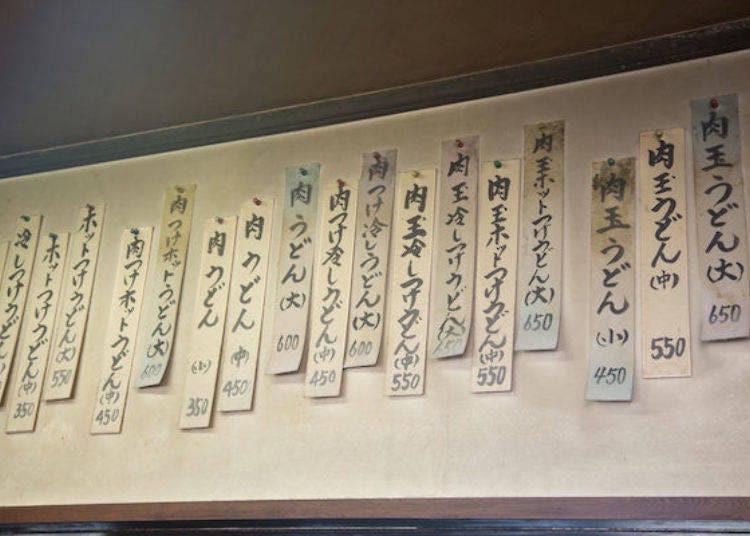 肉玉うどん(大) 650
肉玉うどん(中) 550
肉玉うどん(小) 450
肉玉ホットつけうどん(大) 650
肉玉ホットつけうどん(中) 550
肉玉冷しつけうどん(大) 650
肉玉冷しつけうどん(中) 550
肉つけ冷しうどん(大) 600
肉つけ冷しうどん(中) 450
肉うどん(大) 600
肉うどん(中) 450
肉うどん(小) 350
肉つけホットうどん(大) 600
肉つけホットうどん(中) 450
ホットつけうどん(大) 550
ホットつけうどん(中)
冷しつけうどん(中) 350